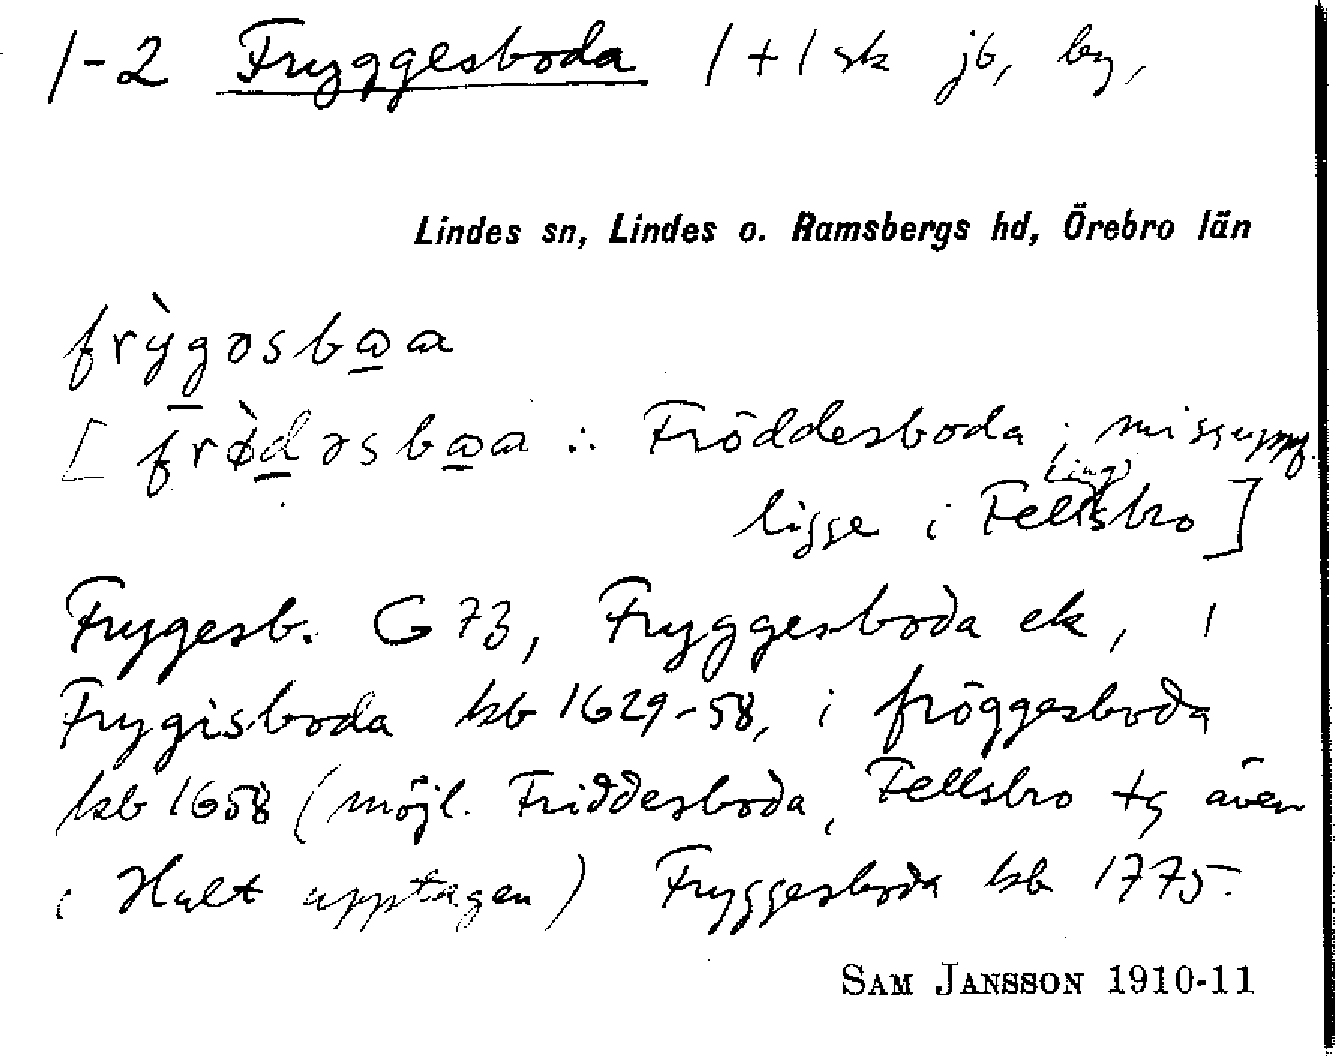 1-2 Fryggesboda 1+1 sk jb, by,
Lindes sn, Lindes o. Ramsbergs hd, Örebro län
frỳgəsbωa
[frø̀dəsbωa ∴ Fröddesboda; missuppf.
ligge i Fellingsbro]
Frygesb. G 73, Fryggesboda ek, i
Frygisboda kb 1629-58, i fröggesboda
kb 1658 (möjl. Friddesboda, Fellsbro ty även
i Hult upptagen) Fryggesboda kb 1775.
SAM JANSSON 1910-11